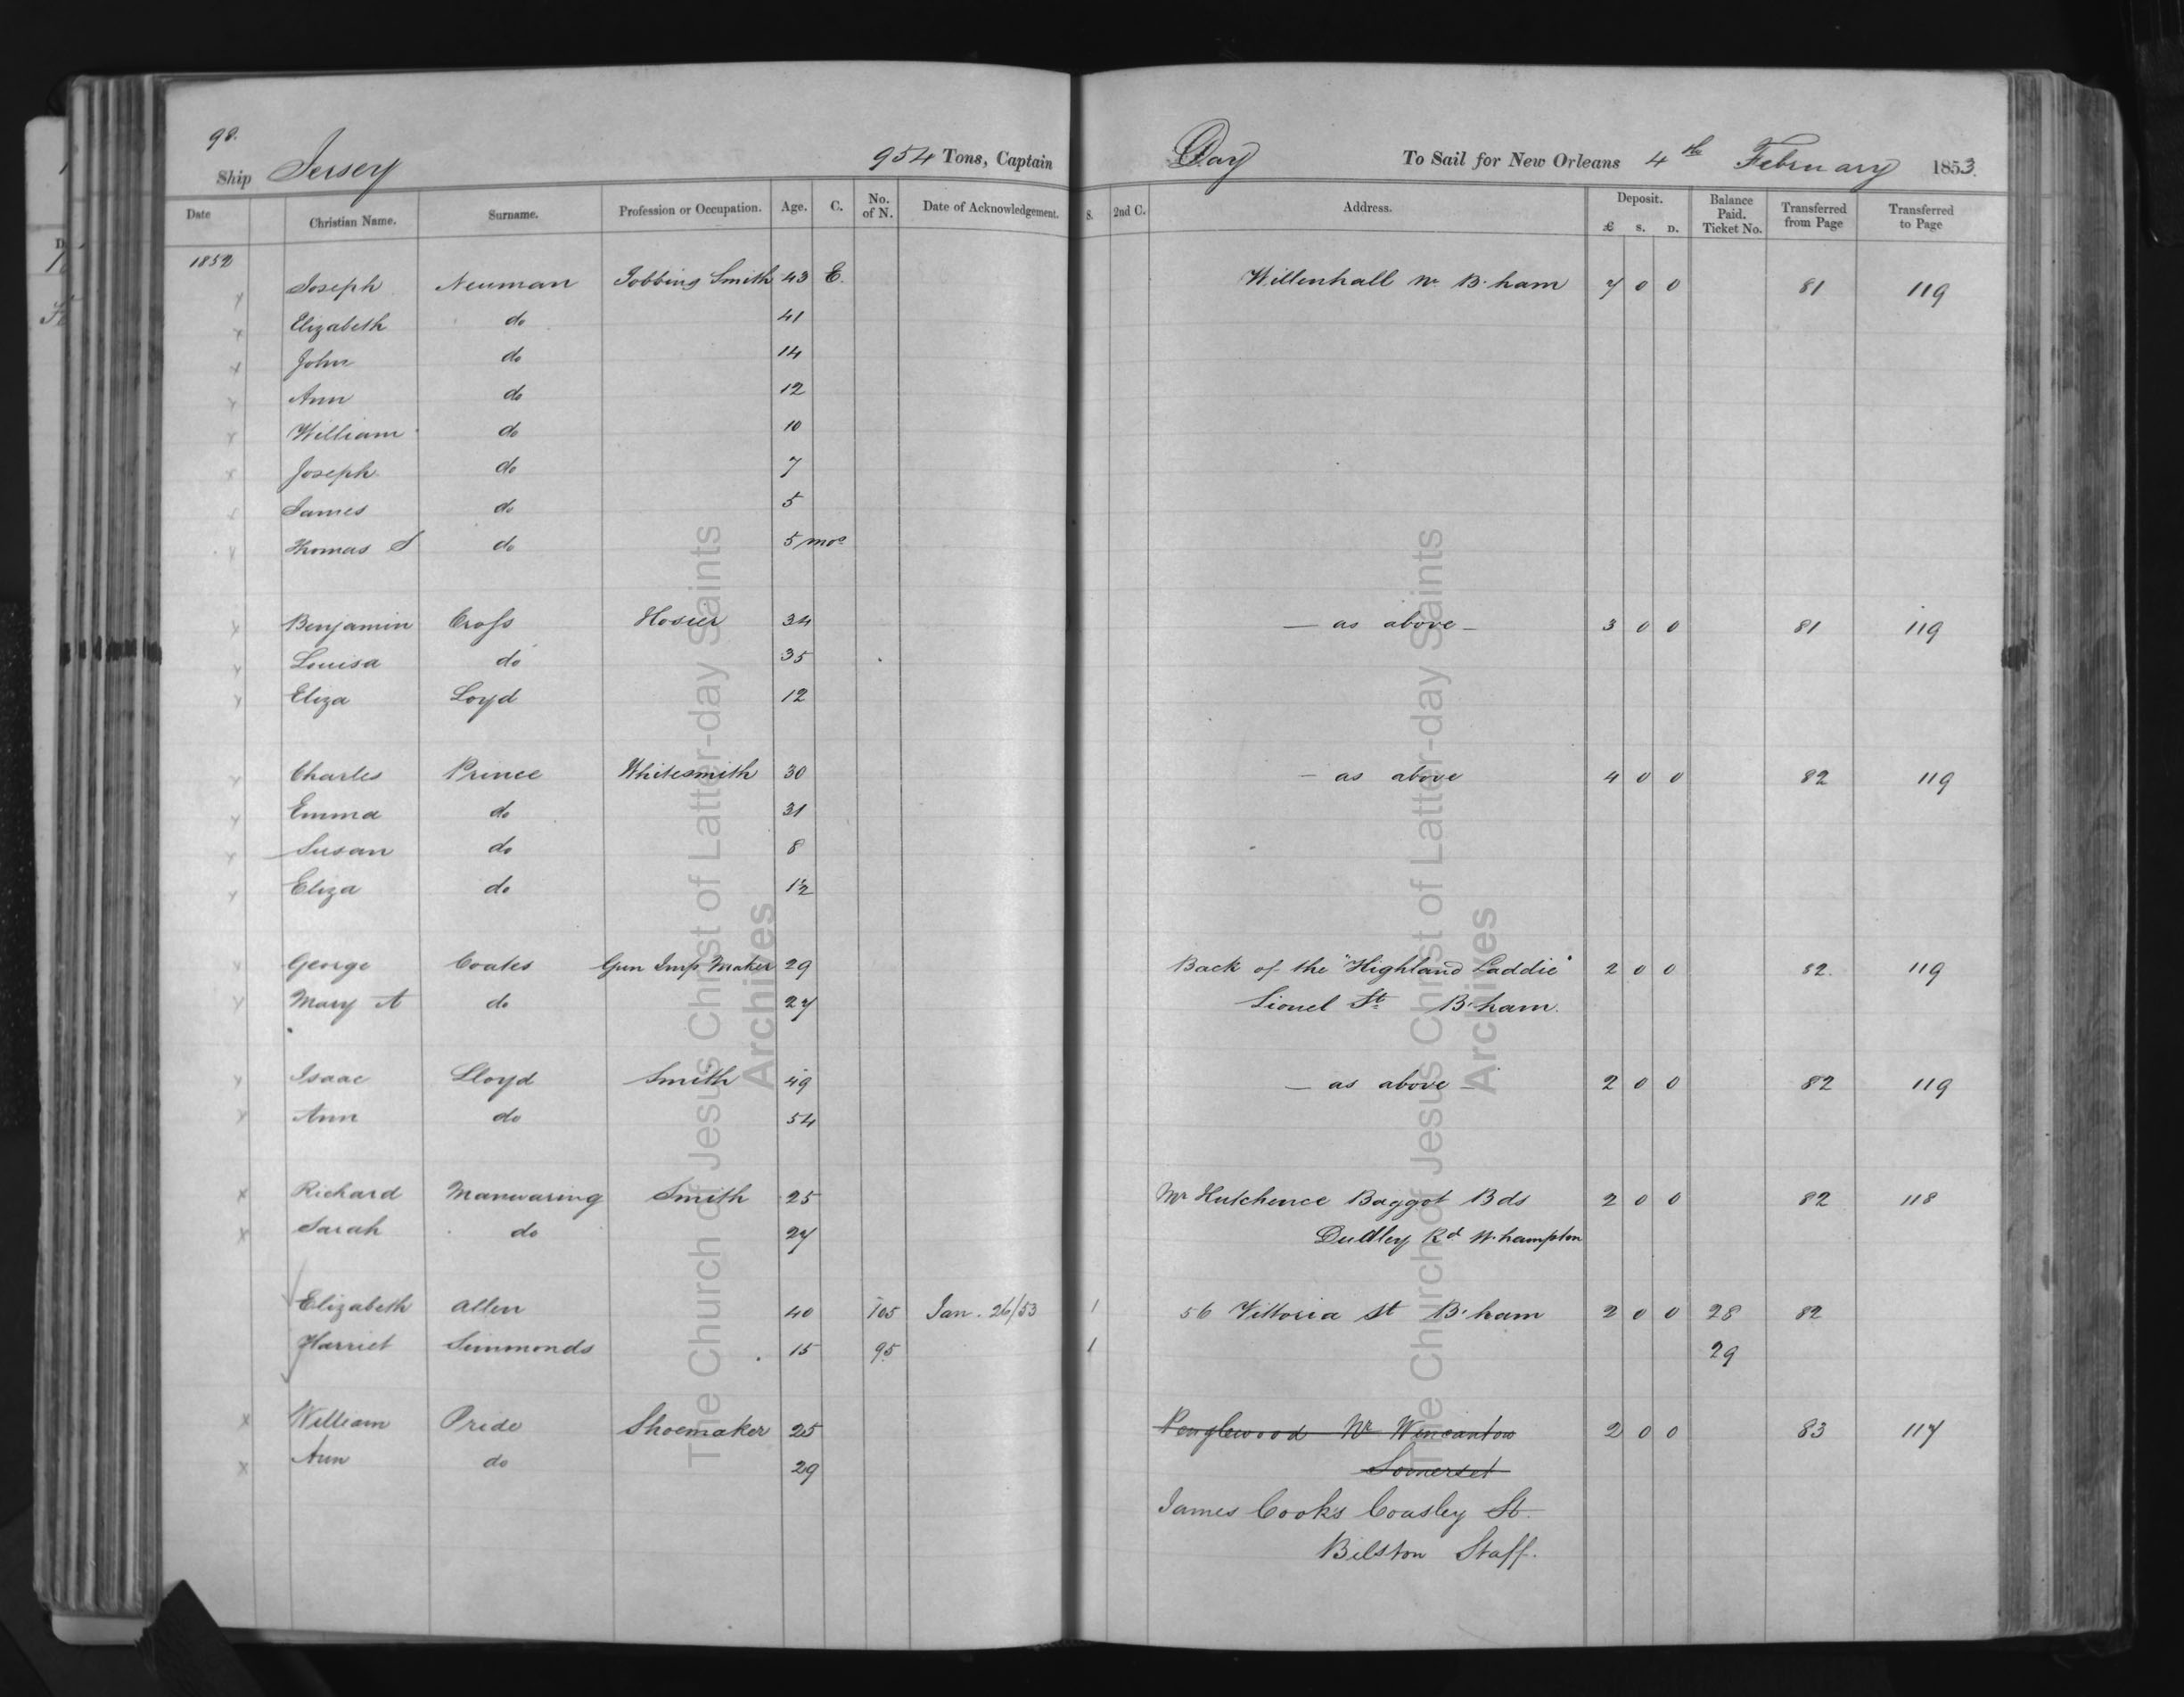 98.
Ship Jersey 954 Tons, Captain Day To Sail for New Orleans 4th February 1853.
Date Christian Name. Surname. Profession or Occupation. Age. C. No. of N. Date of Acknowledgement. S. 2nd C. Address. Deposit. £ S. D. Balance Paid. Ticket No. Transferred from Page Transferred to Page
1852
Joseph Neuman Jobbing Smith 43 E. Willenhall Nr B'ham 7 0 0 81 119
Elizabeth do 41
John do 14
Ann do 12
William do 10
Joseph do 7
James do 5
Thomas S do 5 mos
Benjamin Cross Hosier 34 — as above — 3 0 0 81 119
Louisa do 35
Eliza Loyd 12
Charles Prince Whitesmith 30 — as above 4 0 0 82 119
Emma do 31
Susan do 8
Eliza do 1½
George Coates Gun Imp Maker 29 Back of the "Highland Laddie" 2 0 0 82 119
Mary A do 27 Lionel St B'ham.
Isaac Lloyd Smith 49 — as above — 2 0 0 82 119
Ann do 54
Richard Manwaring Smith 25 Mr Hutchence Baggot Bds 2 0 0 82 118
Sarah do 27 Dudley Rd W.hampton
Elizabeth Allen 40 105 Jan. 26/53 1 56 Vittoria St B'ham 2 0 0 28 82
Harriet Simmonds 15 95 1 29
William Pride Shoemaker 25 Penglewood Nr Wincanton 2 0 0 83 117
Ann do 29 Somerset
James Cooks Coasley St.
Bilston Staff.
The Church of Jesus Christ of Latter-day Saints
Archives
The Church of Jesus Christ of Latter-day Saints
Archives